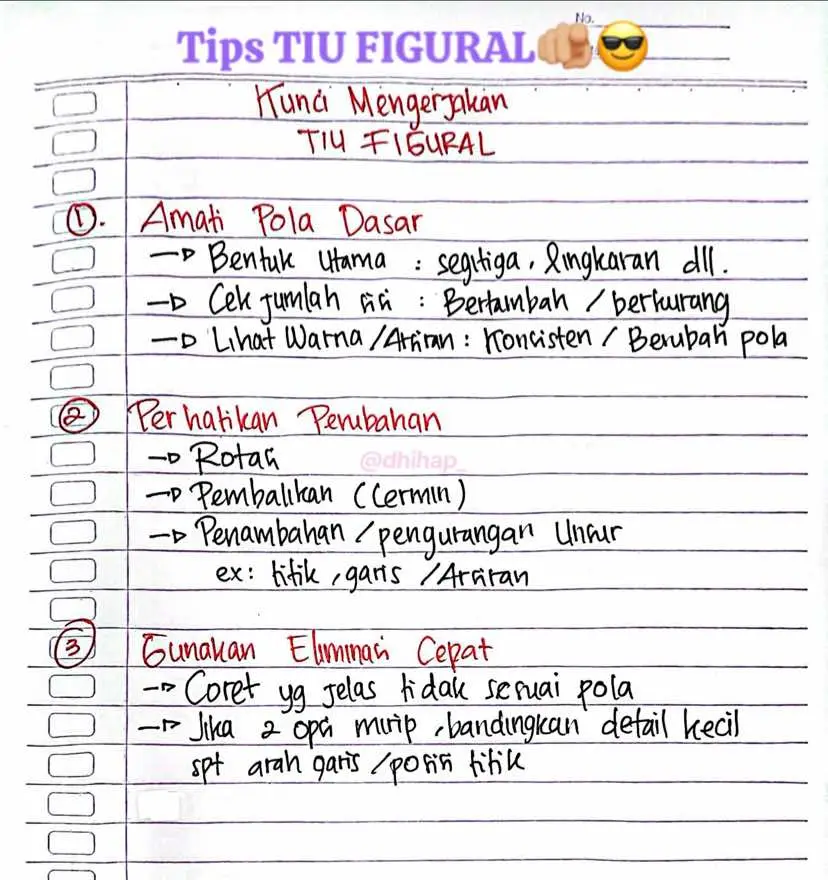 No.
Tips TIU FIGURAL🫵😎
Kunci Mengerjakan
TIU FIGURAL
1. Amati Pola Dasar
→ Bentuk Utama : segitiga, lingkaran dll.
→ Cek jumlah sisi : Bertambah / berkurang
→ Lihat Warna/Arsiran : Konsisten / Berubah pola
2 Perhatikan Perubahan
→ Rotasi
@dhihap_
→ Pembalikan (Cermin)
→ Penambahan / pengurangan Unsur
ex: titik, garis / Arsiran
3 Gunakan Eliminasi Cepat
→ Coret yg jelas tidak sesuai pola
→ Jika 2 opsi mirip, bandingkan detail kecil
spt arah garis / posisi titik